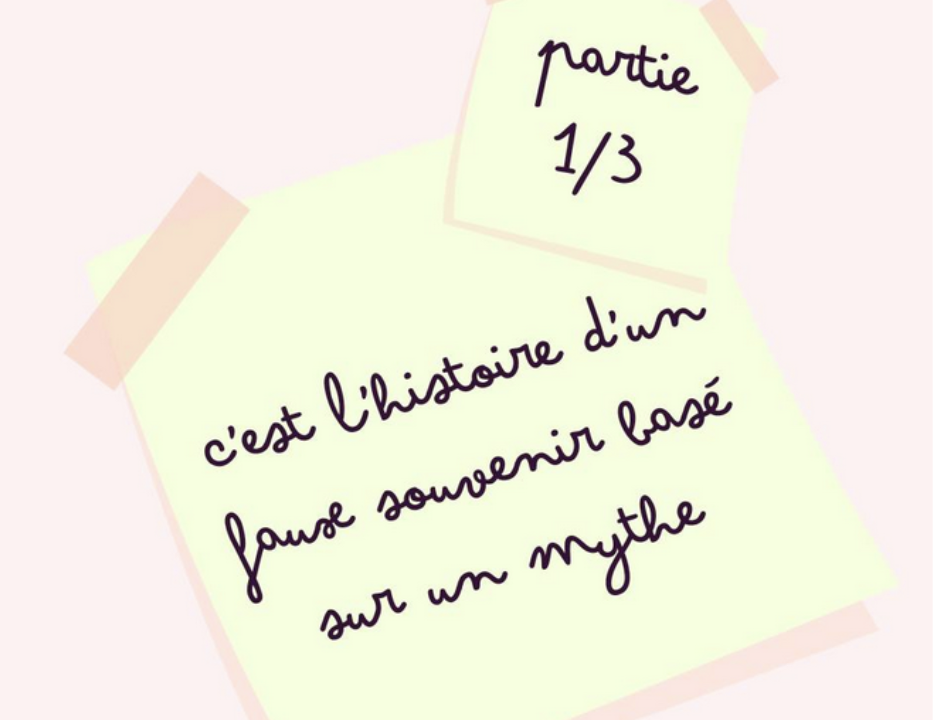 partie
1/3
c'est l'histoire d'un
fause souvenir basé
sur un mythe